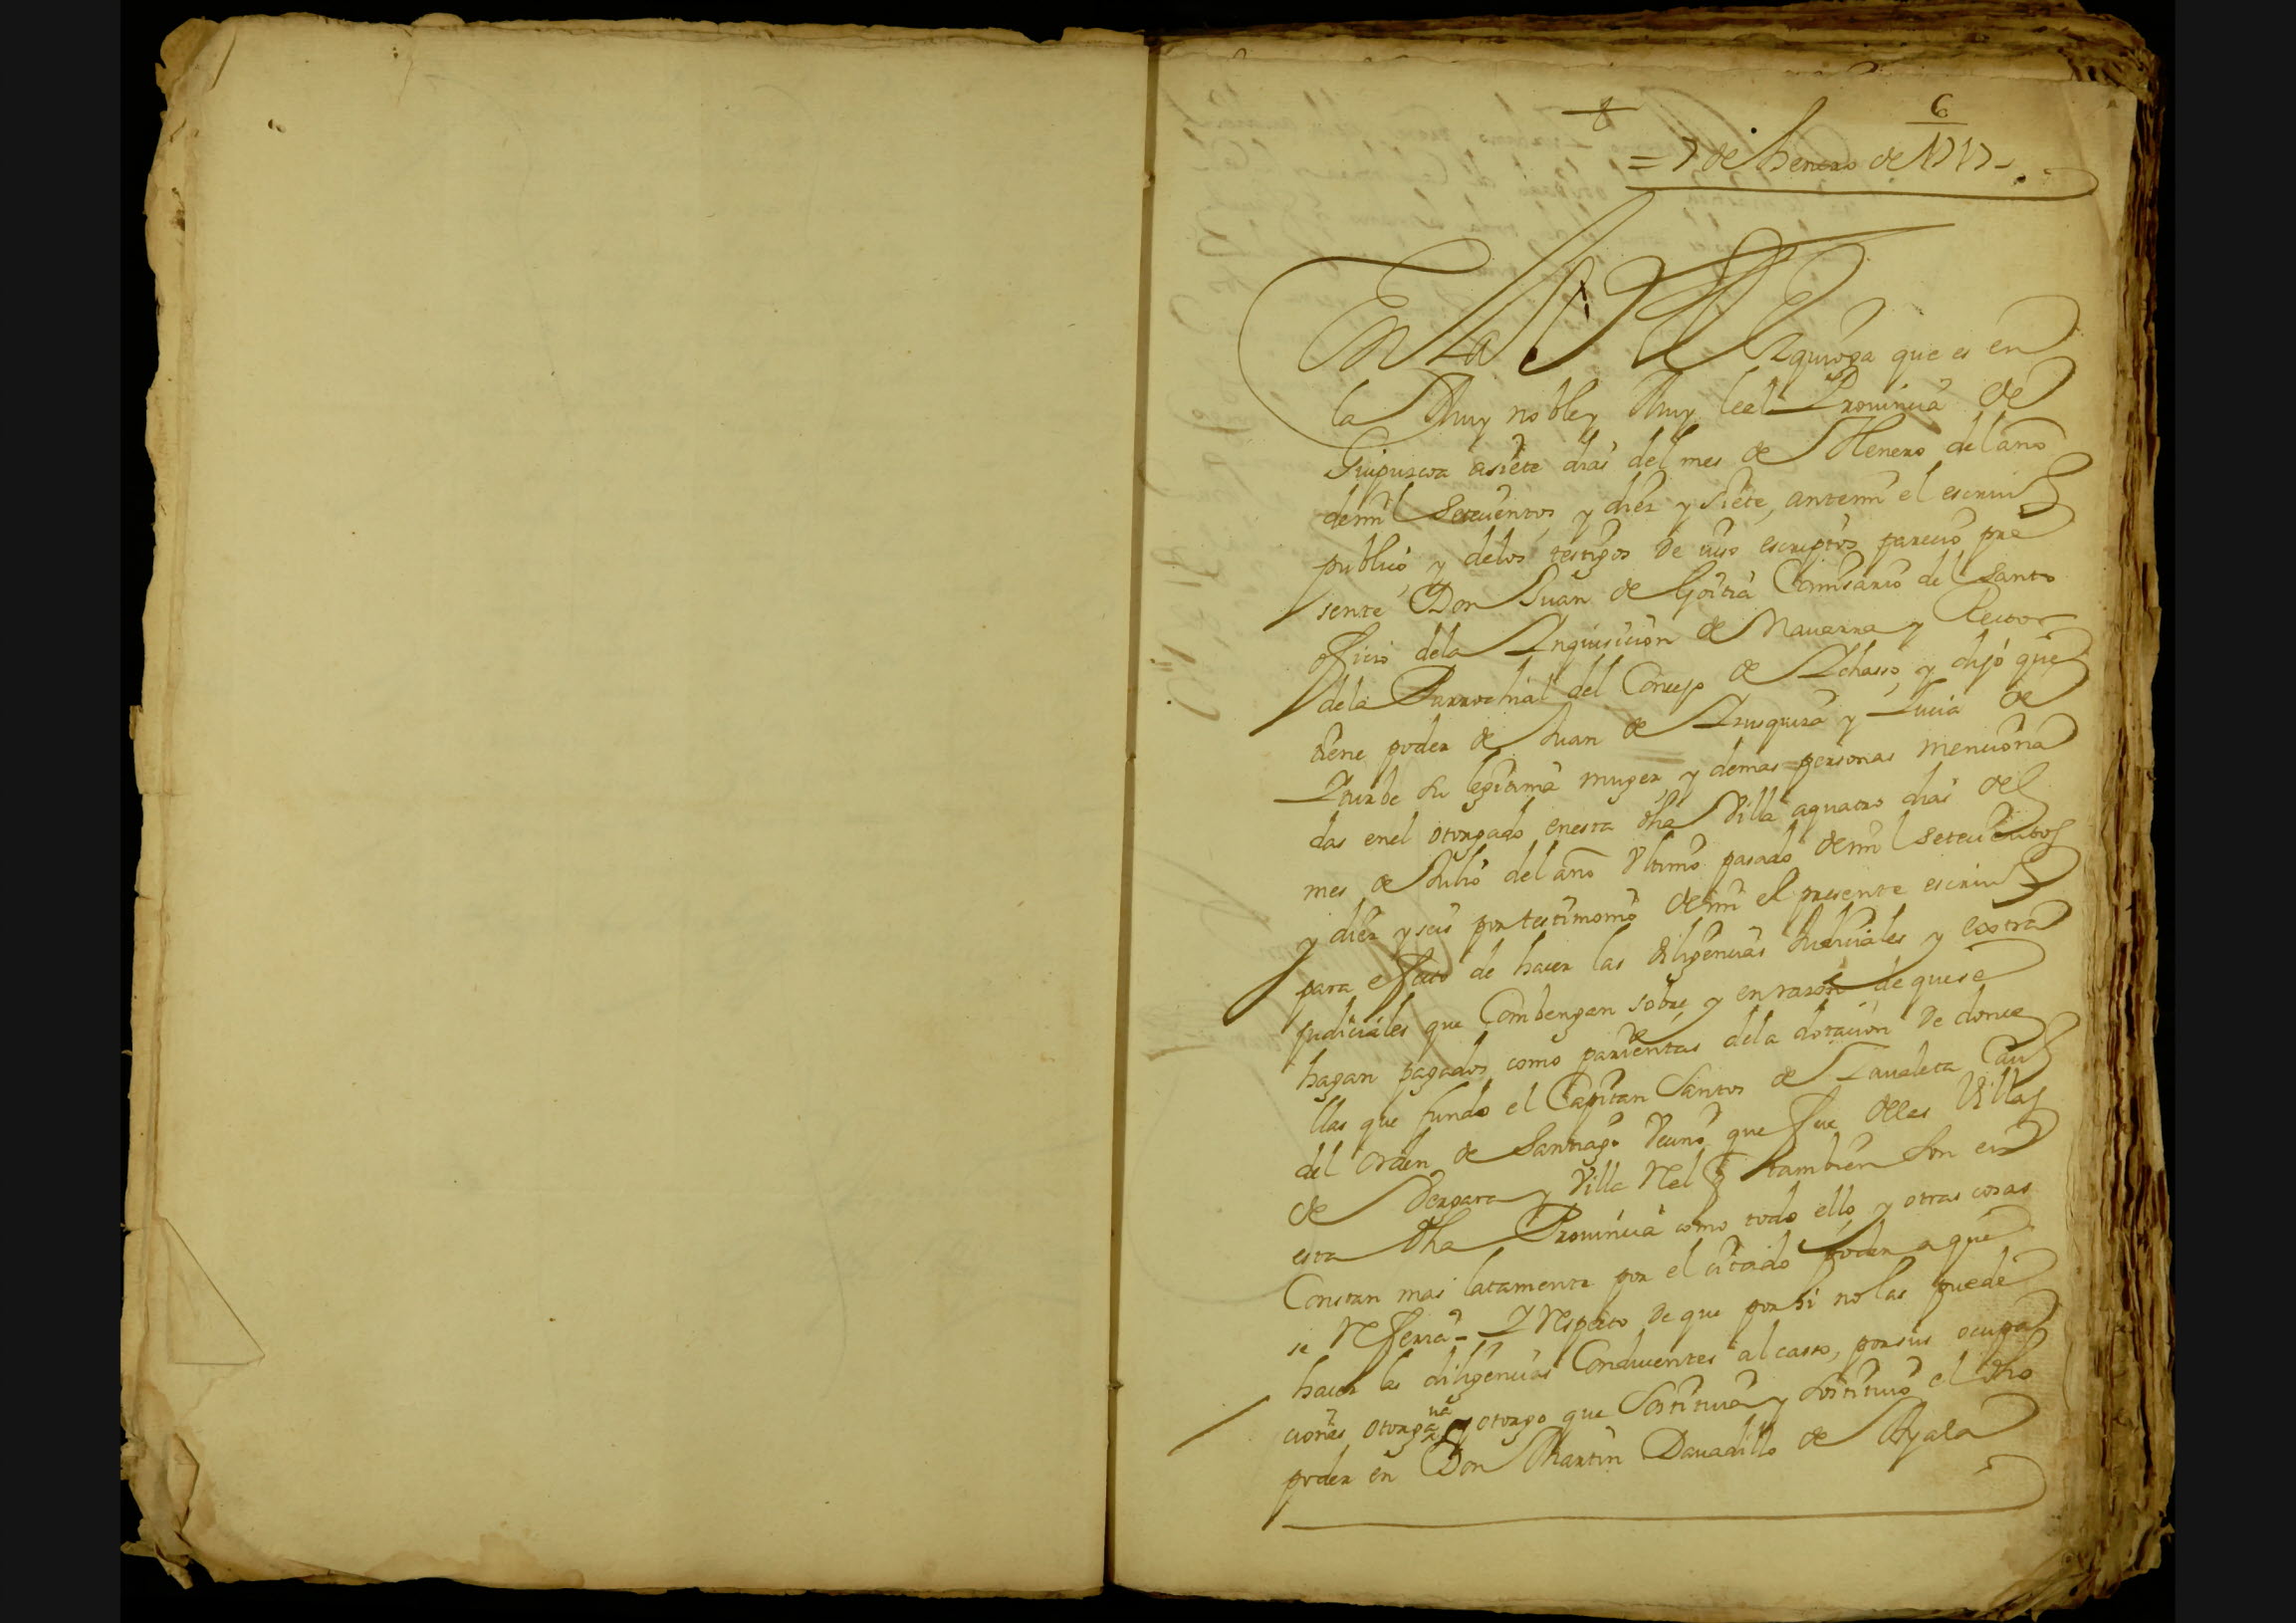 6
= 7 de henero de 1717 -
En la Villa de Zquioga que es en
la Muy noble y Muy leal Prouincia de
Guipuzcoa asiete dias del mes de Henero del año
demil Setecientos y diez y siete, antemi el escriuº
publico y delos testigos de iuso escriptos pareció pre
sente Don Juan de Goitia Comisario del Santo
offiçio dela Inquisicion de Nauarra y Rector
dela Parrochial del Concejo de Ichasso y dijo que
tiene poder de Juan de Aρusquiza y Lucia de
Yturbe su legitima muger, y demas personas menciona
das enel otorgado enesta dha Villa aquatro dias del
mes de Julio del año Vltimo pasado demil setecientos
y diez y seis por testimonio demi el presente escriuº
para effecto de hacer las diligencias Judiciales y extra
judiciales que Combengan sobre y enrazon de quese
hagan pagados como parientas dela dotacion de donce
llas que fundo el Capitan Santos de Zaualeta Cauº
del orden de Santiago Vecino que fue delas Villas
de Vergara y Villa Rel q tambien son en
esta dha Prouincia como todo ello y otras cosas
Constan mas latamente por el citado poder aque
se Refferia - Y Respecto de que porsi nolas puede
hacer las diligencias Conducentes al casso, porsus ocupa
ciones otorgaua y otorgo que Sostituia y Sostituió el dho
poder en Don Martin Dauadillo de Ayala